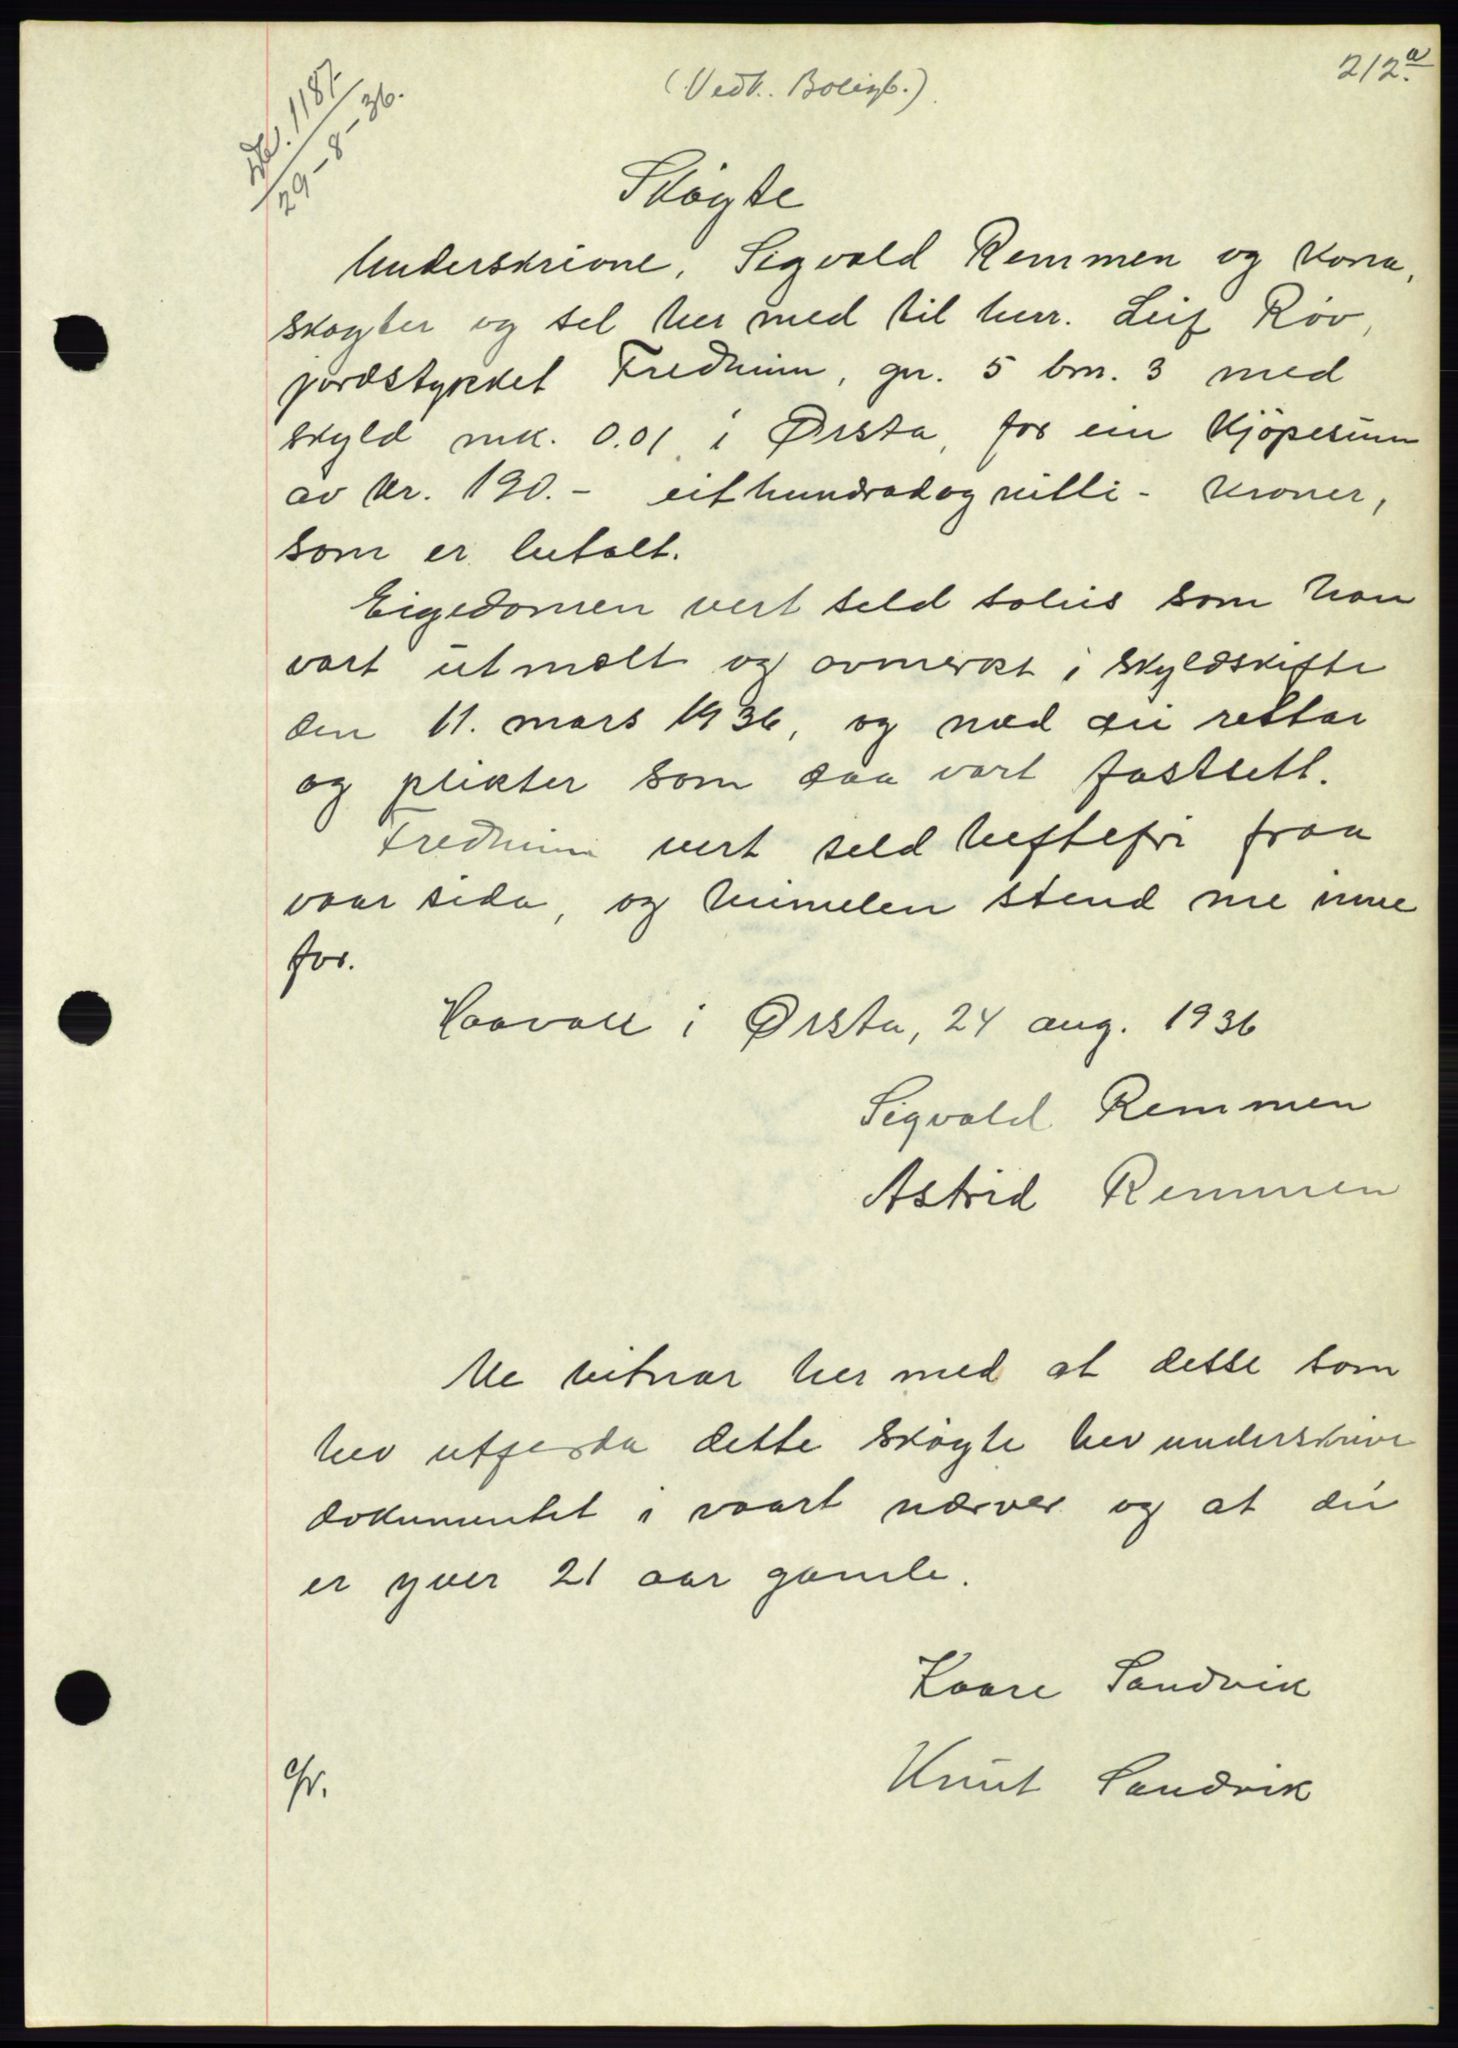 212a
(Vedk. Boligb.)
Nr. 1187
29-8-36.
Skøgte
Underskrivne, Sigvald Remmen og kona,
skøgter og sel her med til herr. Leif Røv,
jordstykket Fredheim, gr. 5 bn. 3 med
skyld mk. 0.01 i Ørsta, for ein kjøpesum
av kr. 190.- eithundradognitti- kroner,
som er betalt.
Eigedomen vert seld soleis som han
vart utmælt og avmerkt i skyldskifte
den 11. mars 1936, og med dei rettar
og plikter som daa vart fastsett.
Fredheim vert seld heftefri fraa
vaar sida, og heimelen stend me inne
for.
Haavoll i Ørsta, 24 aug. 1936
Sigvald Remmen
Astrid Remmen
Me vitnar her med at desse som
hev utferda dette skøgte hev underskrive
dokumentet i vaart nærver og at dei
er yver 21 aar gamle.
Kaare Sandvik
Knut Sandvik